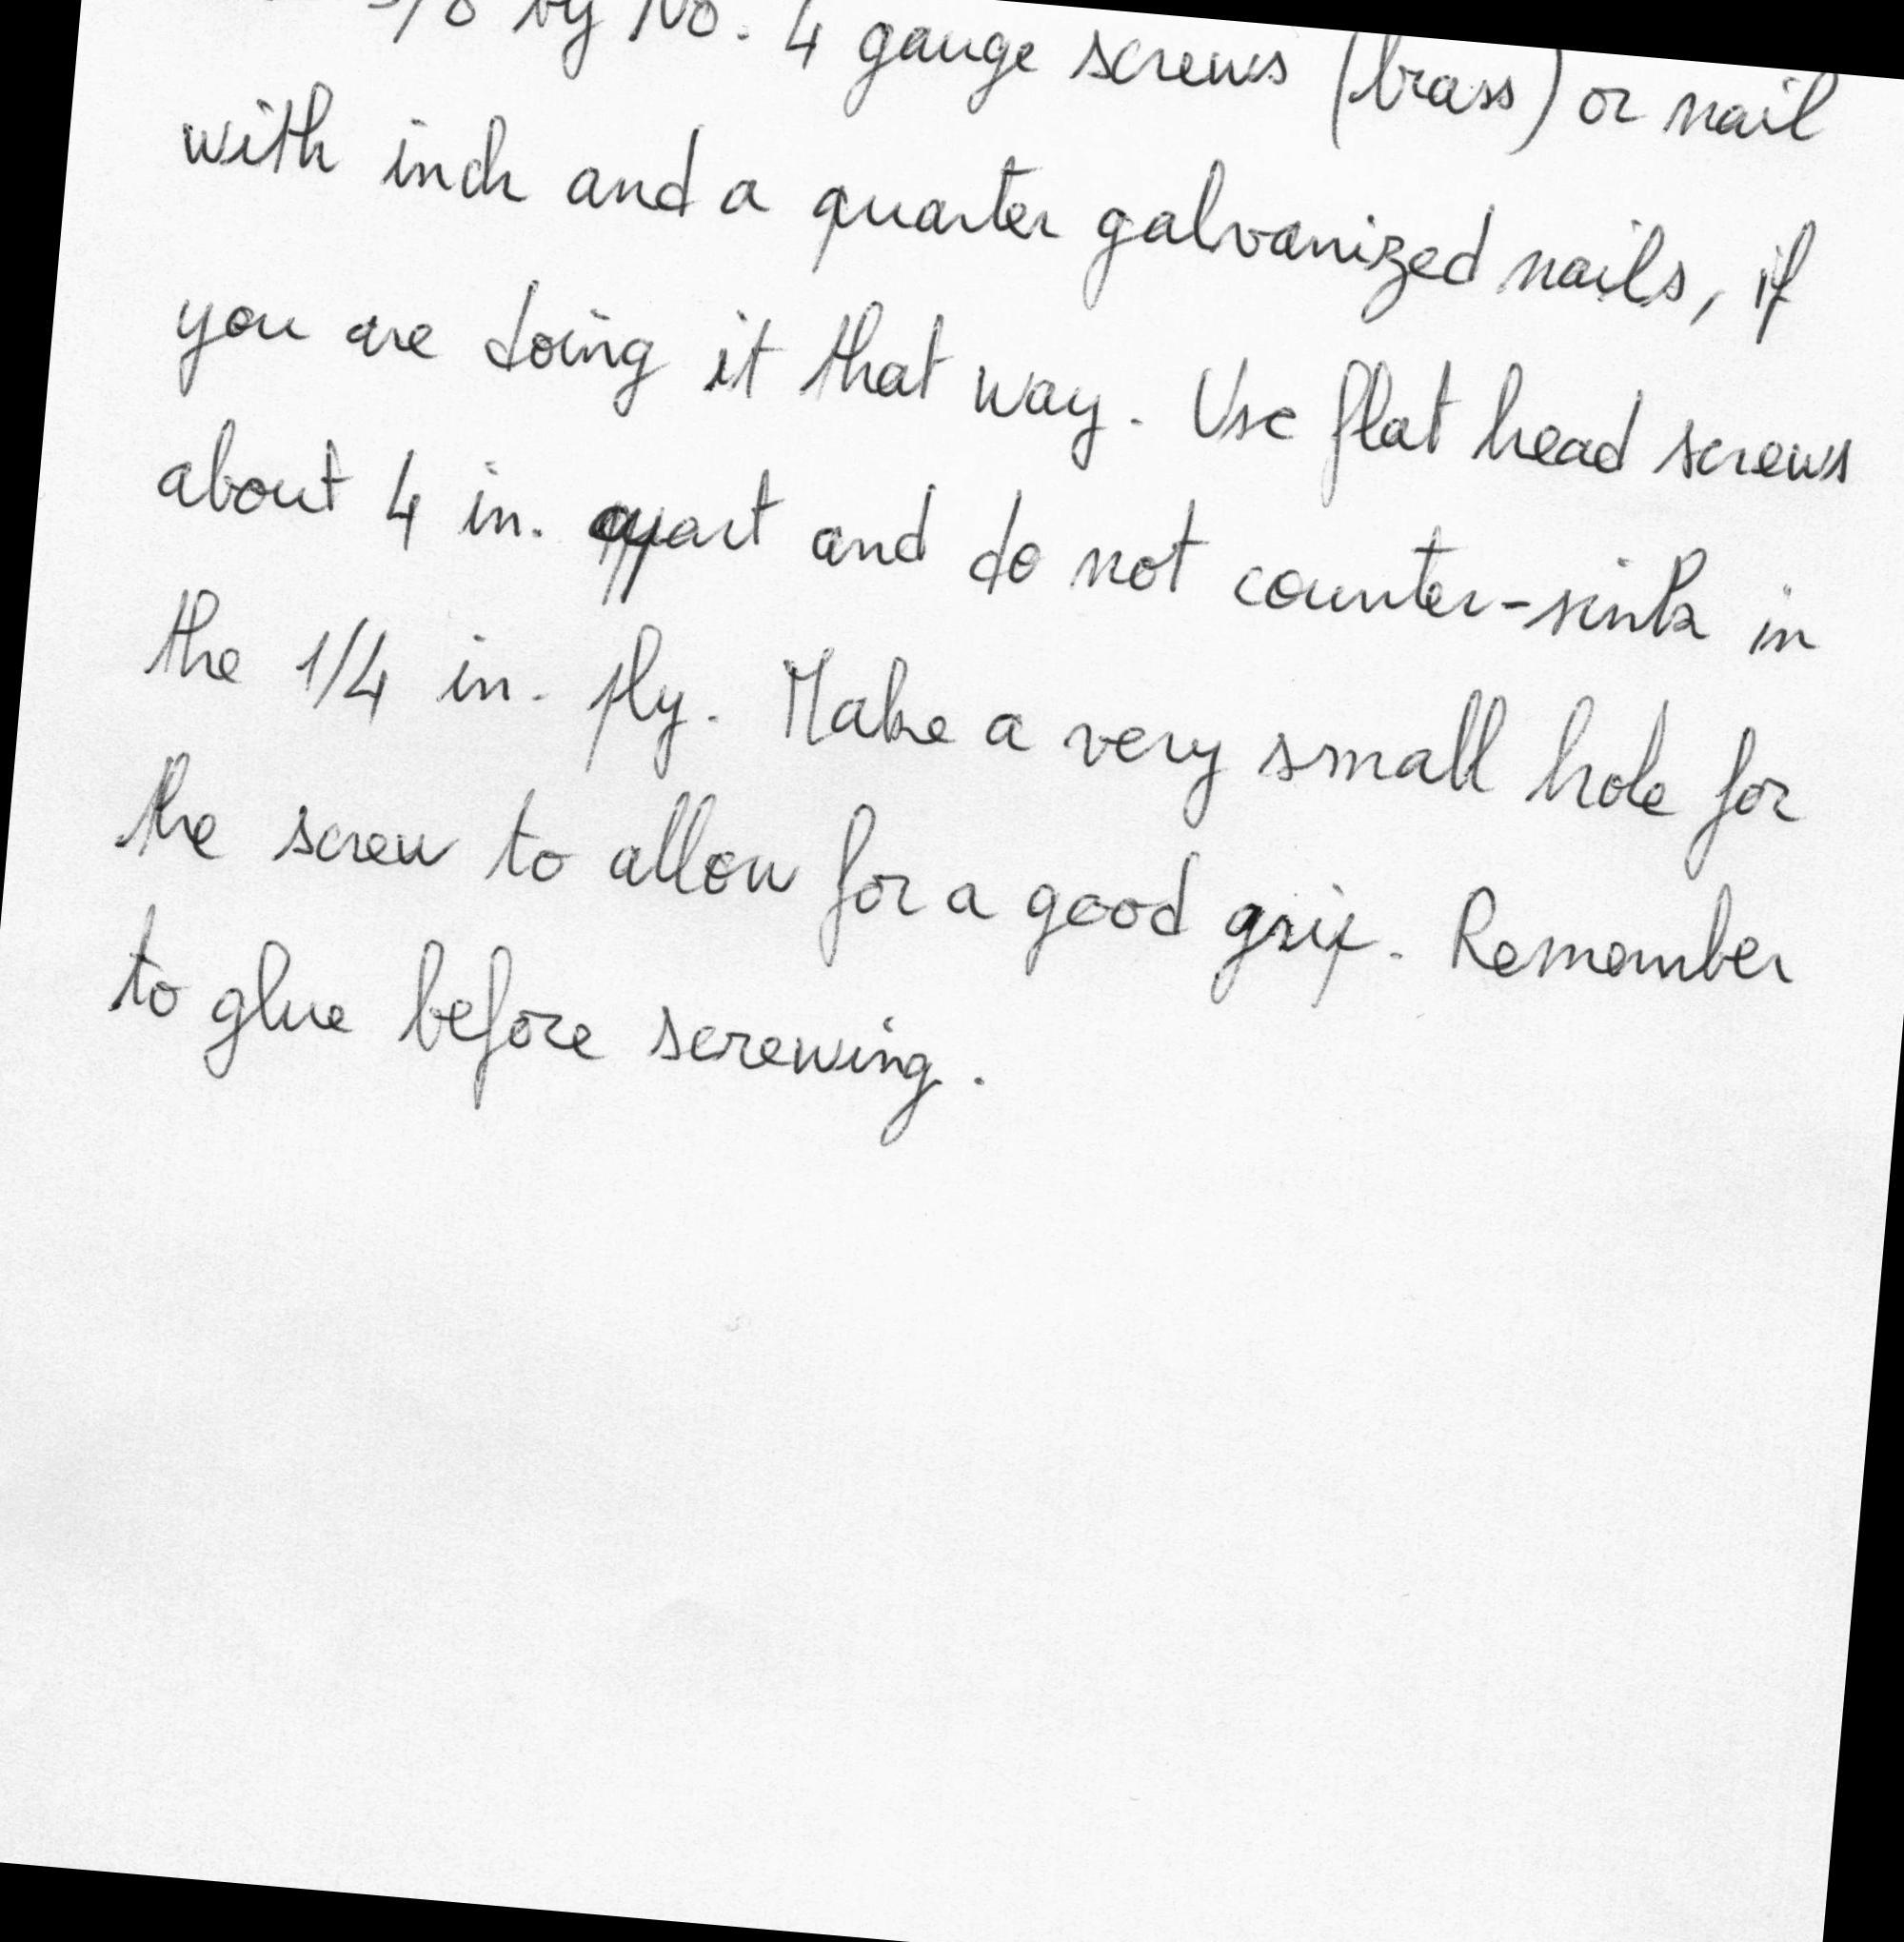 5/8 by No. 4 gauge screws (brass) or nail
with inch and a quarter galvanized nails, if
you are doing it that way. Use flat head screws
about 4 in. apart and do not counter-sink in
the 1/4 in. ply. Make a very small hole for
the screw to allow for a good grip. Remember
to glue before screwing.